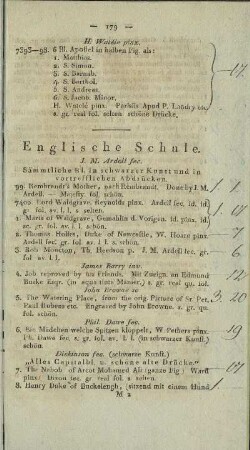 — 179 —
H. Watdie pinx.
7393—98. 6 Bl. Apostel in halben Fig. als:
1. Matthias.
2. S. Simon.
3. S. Barnab.
4. S. Barthol.
5. S. Andreas.
6. S. Jacob. Minor.
H. Watdé pinx. Parisiis Apud P. Landry
s. gr. real fol. selten schöne Drücke.
17
Englische Schule.
J. M. Ardell fec.
Sämmtliche Bl. in schwarzer Kunst und in
vortrefflichen Abdrücken.
99. Rembrandt's Mother, nach Rembrandt. Done by J. M.
Ardell. — Mezfec. fol. schön.
7400. Lord Waldgrave, Reynolds pinx. Ardell fec. id. id.
gr. fol. av. l. l. s. selten.
1. Lady Waldgrave, Gemahlin d. Vorigen. id. id.
sc. gr. fol. av. l. l. s. schön.
2. Thomas Holles, Duke of Newcastle, W. Hoare pinx.
Ardell fec. gr. fol. av. l. l. s. schön.
3. Beth Monckton, Th. Hudson p. J. M. Ardell fec. gr.
fol. s. schön.
James Barry inv.
4. Job reproved by his Friends. Mit Zueign. an Edmund
Burke Esqr. (in equa tinta Manier.) s. gr. real qu. fol.
John Browne sc.
5. The Watering Place, from the orig. Picture of Sr. Pet.
Paul Rubens etc. Engraved by John Browne. s. gr. real
qu. fol. schön.
3. 20
Phil. Dawe fec.
6. Ein Mädchen welche Spitzen klöppelt, W. Pethers pinx.
Ph. Dawe fec. s. gr. fol. av. l. l. (in schwarzer Kunst)
schön.
19
Dickinson fec. (schwarze Kunst.)
„Alles Capitalbl. u. schöne alte Drücke.“
7. The Nabob of Arcot Mohamed Ali (ganze Fig.) Ward
pinx. Dixon fec. gr. real fol. s. selten u. schön.
17
8. Henry Duke of Buckcleugh, (sitzend mit einem Hund
M 2
1